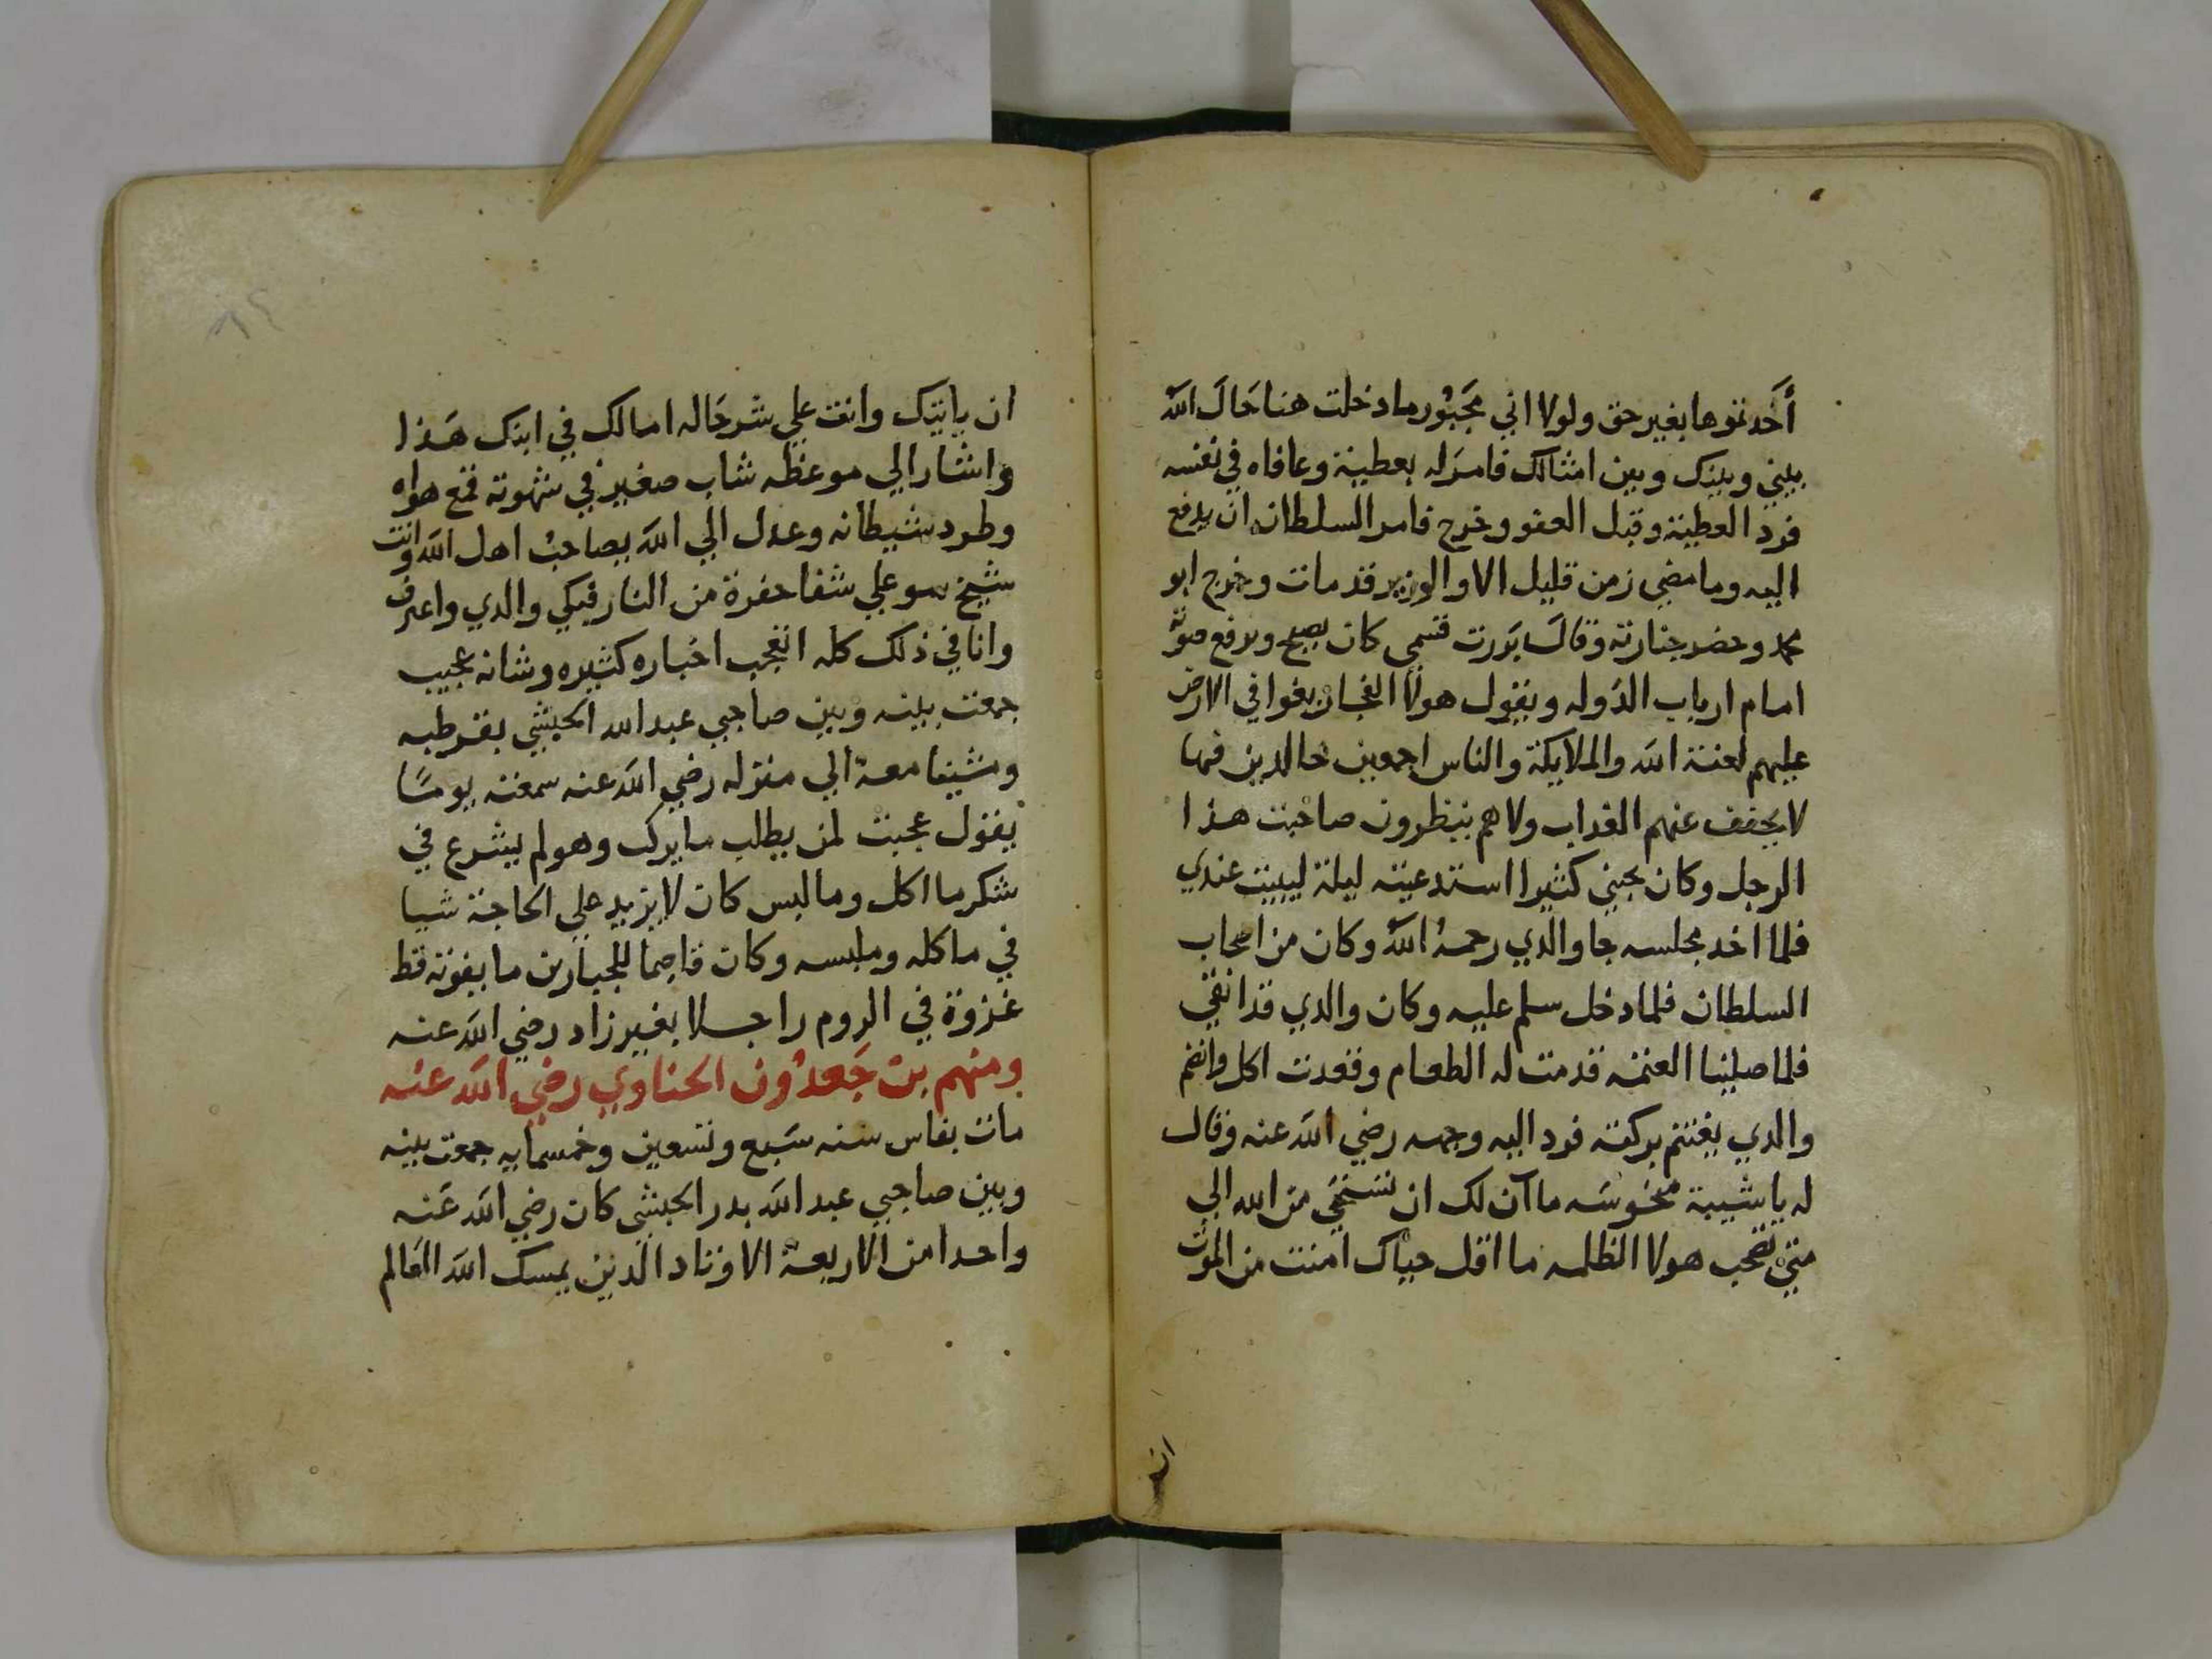 أخدتموها بغير حق ولولا اني مجبور ما دخلت هنا حال الله
بيني وبينك وبين امثالك فامر له بعطية وعافاه في نفسه
فرد العطية وقبل العفو وخرج فامر السلطان ان يدفع
اليه وما مضي زمن قليل الا والوزير قد مات وخرج ابو
محمد وحضر جنازته وقال بررت قسمي كان يصيح ويرفع صوته
امام ارباب الدوله ويقول هولا الفجار بغوا في الارض
عليهم لعنة الله والملايكة والناس اجمعين خالدين فيها
لا يخفف عنهم العداب ولا هم ينظرون صاحبت هذا
الرجل وكان يحبني كثيرا استدعيته ليلة ليبيت عندي
فلما اخد مجلسه جا والدي رحمه الله وكان من اصحاب
السلطان فلما دخل سلم عليه وكان والدي قد انقي
فلما صلينا العتمه قدمت له الطعام وقعدت اكل وانضم
والدي يغتنم بركته فرد اليه وجهه رضي الله عنه وقال
له يا شيبة منحوسه ما آن لك ان تستحي من الله الي
متي تصحب هولا الظلمه ما اقل حياك امنت من الموت
ان
ان ياتيك وانت علي شر حاله امالك في ابنك هذا
واشار الي موعظه شاب صغير في شهوته قمع هواه
وطرد شيطانه وعدل الي الله يصاحب اهل الله وانت
شيخ سو علي شفا حفرة من النار فبكي والدي واعترف
وانا في ذلك كله اتعجب اخباره كثيره وشانه عجيب
جمعت بينه وبين صاحبي عبد الله الحبشي بقرطبه
ومشينا معه الي منزله رضي الله عنه سمعته يوما
يقول عجبت لمن يطلب ما يركب وهو لم يشرع في
شكر ما اكل وما لبس كان لا يزيد علي الحاجة شيا
في ماكله وملبسه وكان قاصما للجبارين ما يفوته قط
غزوة في الروم راجلا بغير زاد رضي الله عنه
ومنهم بن جعدون الحناوي رضي الله عنه
مات بفاس سنه سبع وتسعين وخمسمايه جمعت بينه
وبين صاحبي عبد الله بدر الحبشي كان رضي الله عنه
واحدا من الاربعة الاوتاد الدين يمسك الله العالم